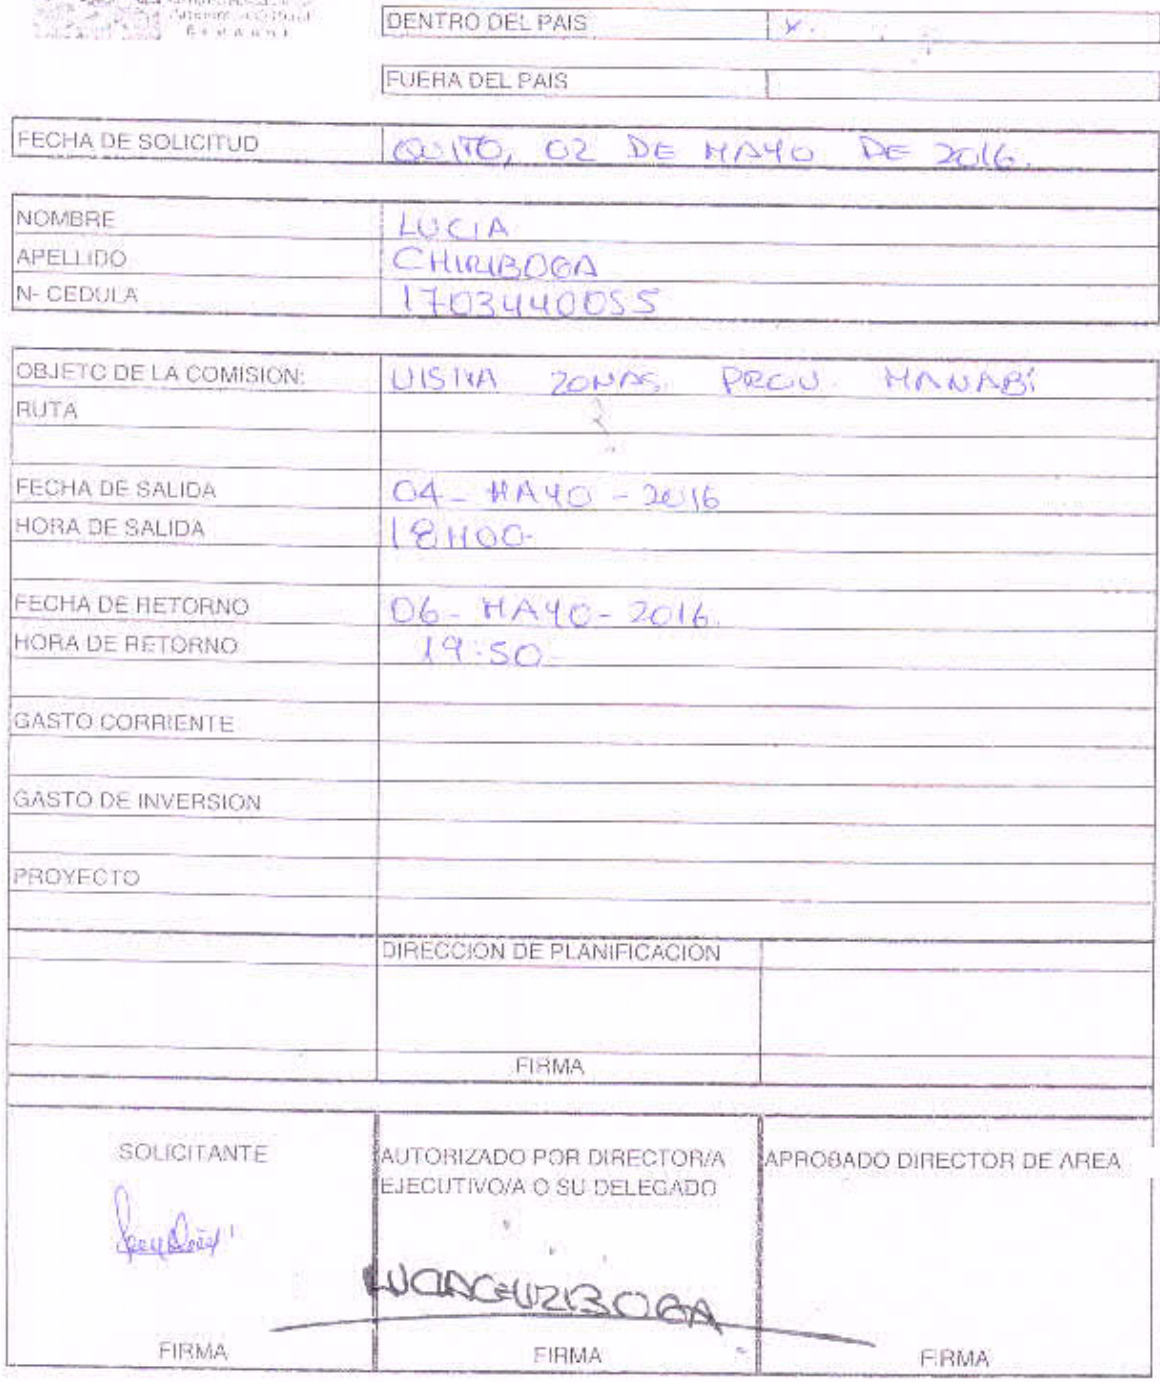 DENTRO DEL PAIS X.
FUERA DEL PAIS
FECHA DE SOLICITUD QUITO, 02 DE MAYO DE 2016.
NOMBRE LUCIA
APELLIDO CHIRIBOGA
N- CEDULA 1703440055
OBJETO DE LA COMISION: VISITA ZONAS. PROV. MANABÍ
RUTA
FECHA DE SALIDA 04 - MAYO - 2016
HORA DE SALIDA 18H00-
FECHA DE RETORNO 06 - MAYO - 2016.
HORA DE RETORNO 19:50-
GASTO CORRIENTE
GASTO DE INVERSION
PROYECTO
DIRECCION DE PLANIFICACION
FIRMA
SOLICITANTE AUTORIZADO POR DIRECTOR/A APROBADO DIRECTOR DE AREA
EJECUTIVO/A O SU DELEGADO
LUCIACHIRIBOGA
FIRMA FIRMA FIRMA